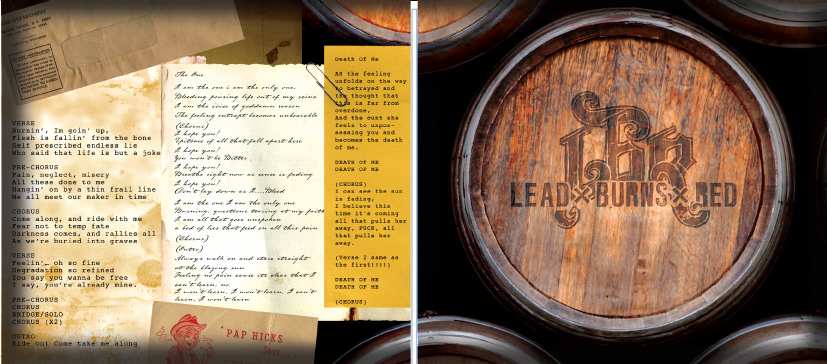 VERSE
Burnin', Im goin' up,
Flesh is fallin' from the bone
Self prescribed endless lie
Who said that life is but a joke
PRE-CHORUS
Pain, neglect, misery
All these done to me
Hangin' on by a thin frail line
We all meet our maker in time
CHORUS
Come along, and ride with me
Fear not to temp fate
Darkness comes, and rallies all
As we're buried into graves
VERSE
Feelin'… oh so fine
Degradation so refined
You say you wanna be free
I say, you're already mine.
PRE-CHORUS
CHORUS
BRIDGE/SOLO
CHORUS (X2)
OUTRO
Ride on! Come take me along
The One
I am the one i am the only one,
Bleeding pouring life out of my veins
I am the voice of goddamn reason
The feeling entrapt becomes unbearable
(Chorus)
I hope you!
Epitome of all that fall apart here
I hope you!
You won't be Bitter
I hope you!
Breathe right now as sense is fading
I hope you!
Don't lay down as I....Bleed
I am the one I am the only one
Burning, questions tearing at my faith
I am all that goes unspoken
a bed of lies that feed on all this pain
(Chorus)
(Outro)
Always walk on and stare straight
at the blazing sun
Feeling no pain cause its clear that I
can't learn, no
I won't learn, I won't learn, I can't
learn, I won't learn
PAP HICKS
Says
Death Of Me
AS the feeling
unfolds on the way
to betrayed and
the thought that
this is far from
overdone,
And the cunt she
feels to unpos-
sessing you and
becomes the death
of me.
DEATH OF ME
DEATH OF ME
(CHORUS)
I can see the sun
is fading,
I believe this
time it's coming
all that pulls her
away, FUCK, all
that pulls her
away.
(Verse 2 same as
the first!!!!)
DEATH OF ME
DEATH OF ME
(CHORUS)
LBR
LEAD BURNS RED